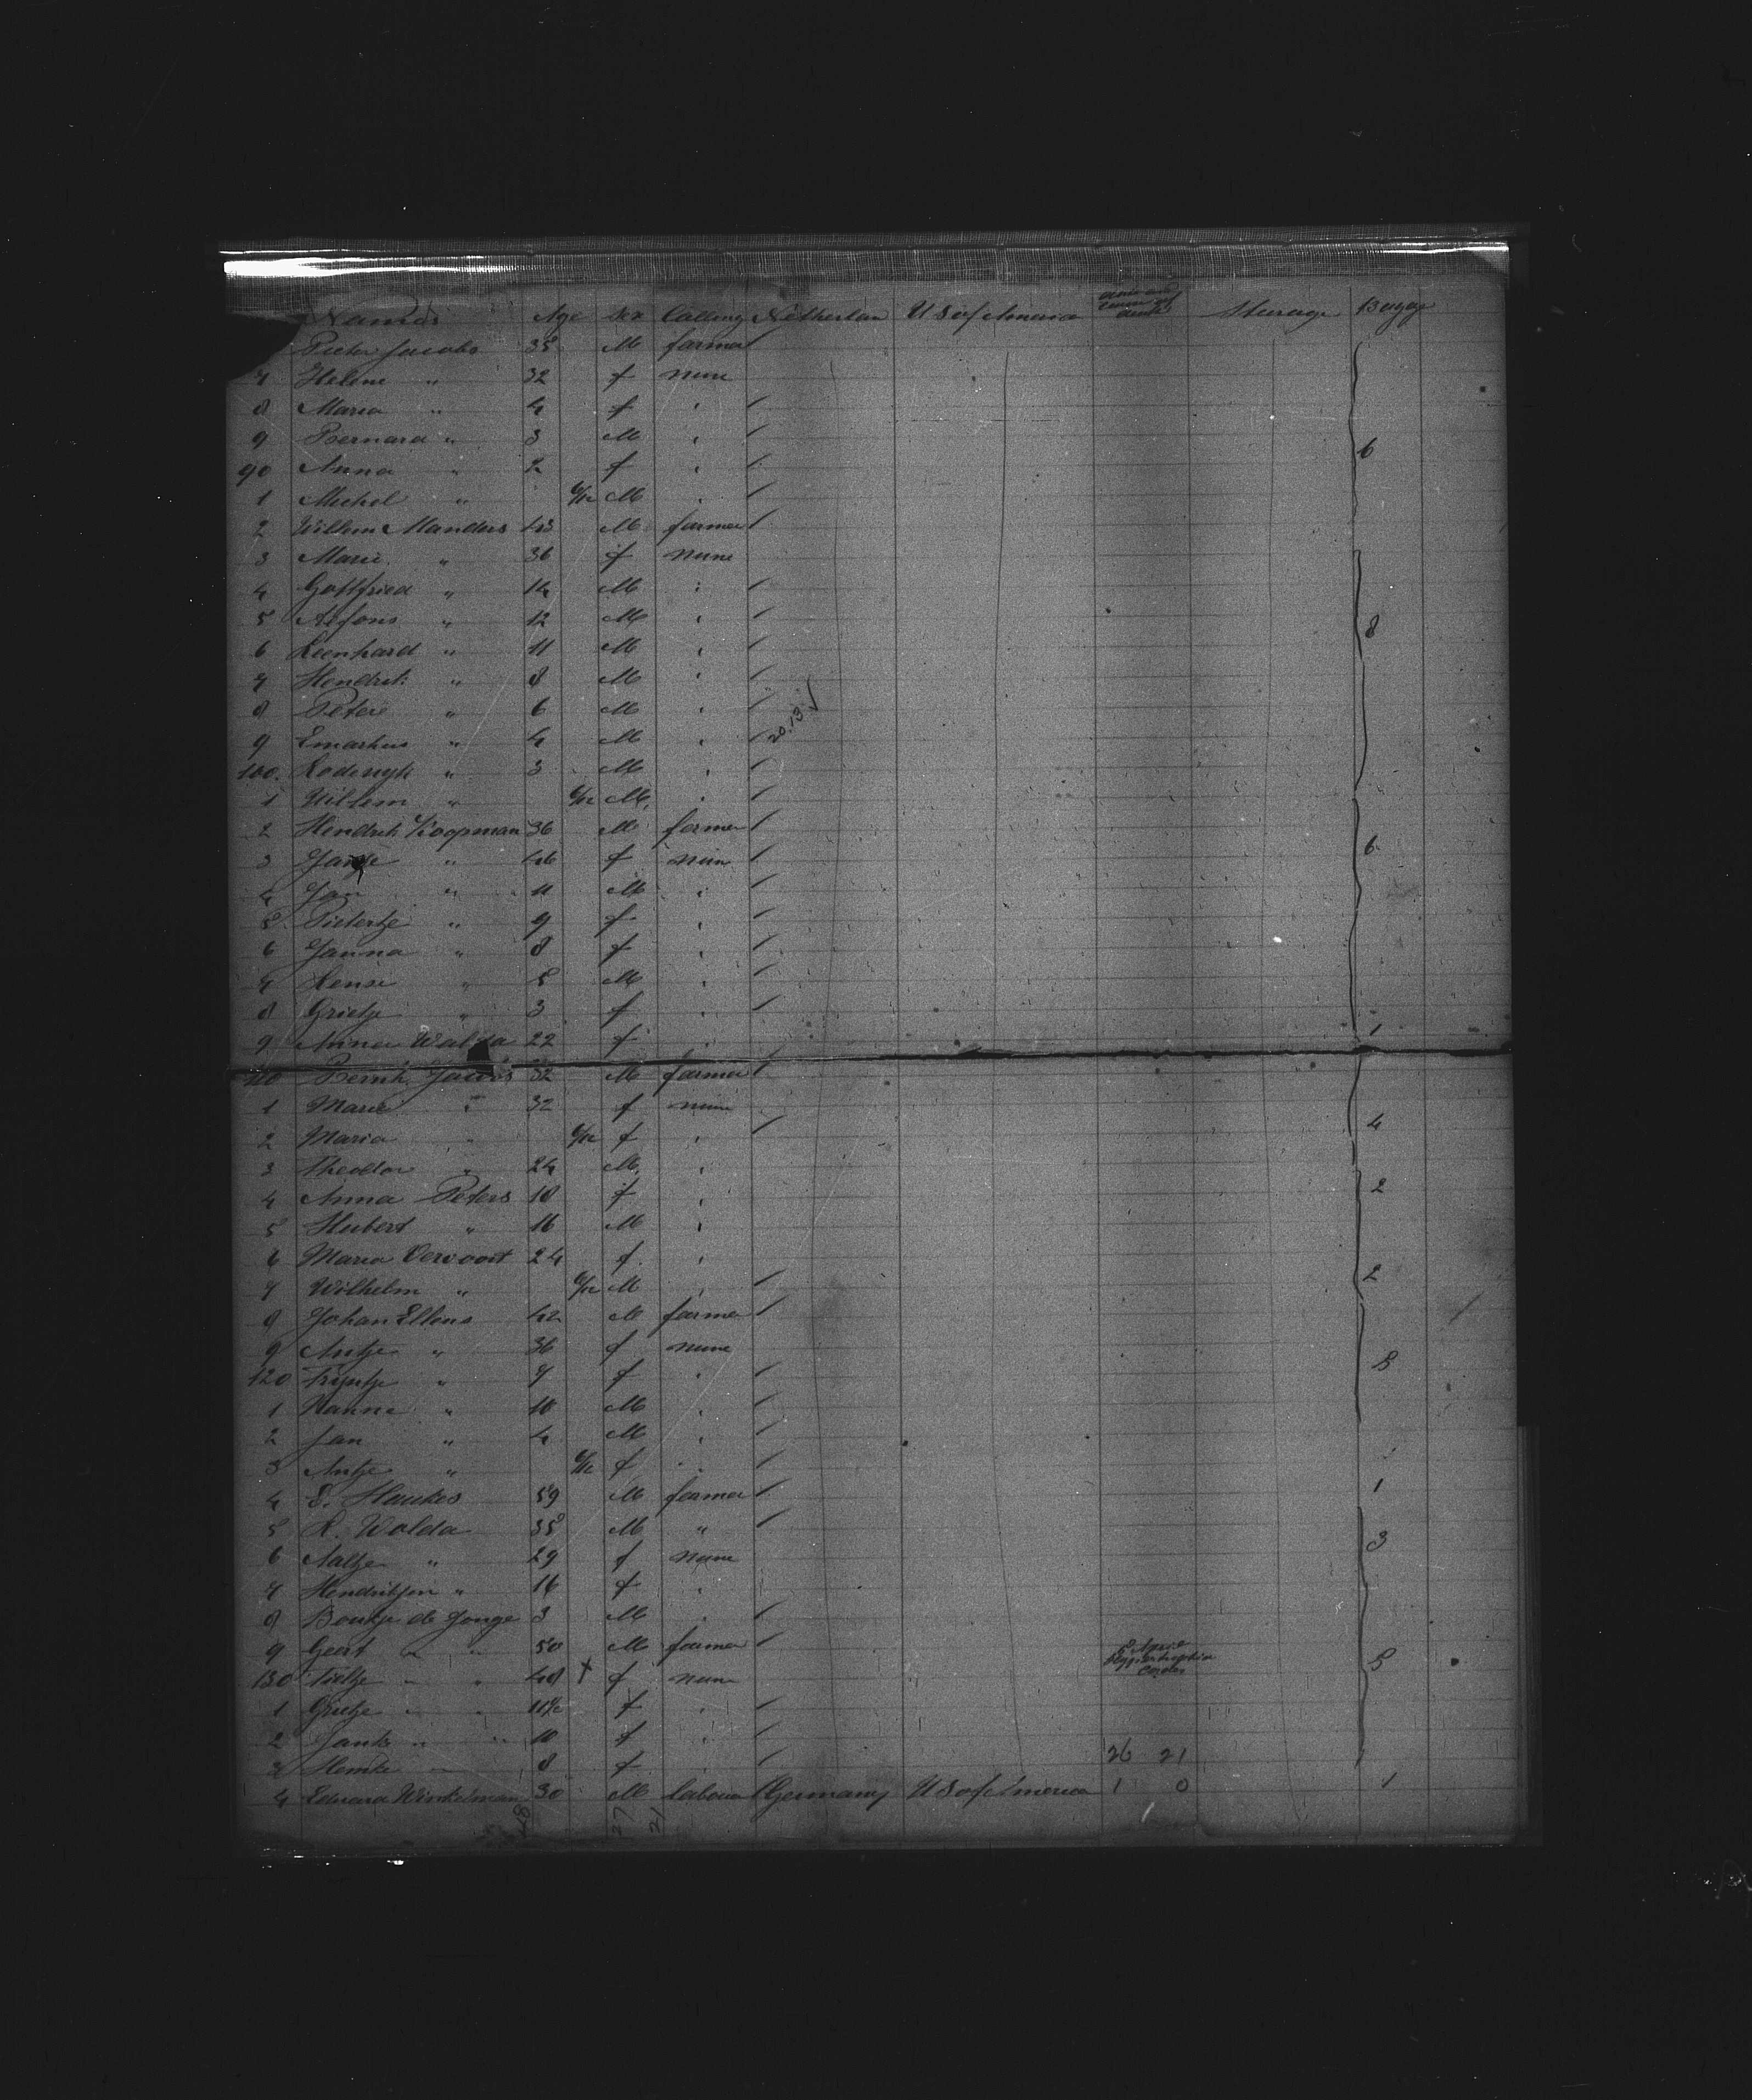 Names Age Sex Calling Netherlan U S of America date and cause of death Sterage Bagage
Pieter Jacobs 35 M farmer
7 Helene " 32 f none
8 Maria " 4 f "
9 Bernard " 3 M "
90 Anna " 2 f " 6
1 Michel " 6/12 M "
2 Willem Manders 43 M farmer
3 Marie " 36 f none
4 Gottfried " 14 M "
5 Alfons " 12 M " 8
6 Leenhard " 11 M "
7 Hendrik " 8 M "
8 Peter " 6 M "
9 " 4 M " 20.13 √
100 Lodewyk " 3 M "
1 Willem " 6/12 M "
2 Hendrik Koopman 36 M farmer
3 " 46 f none 6
4 Jan " 11 M "
5 Pietertje " 9 f "
6 Janna " 8 f "
7 Rense " 5 M "
8 Grietje " 3 f "
9 Anna Walda 22 f " 1
110 Bernh. Jacobs 32 M farmer
1 Marie " 32 f none
2 Maria " 6/12 f " 4
3 Theodor " 24 M "
4 Anna Peters 18 f " 2
5 Hubert " 16 M "
6 Maria Vervoort 24 f "
7 Wilhelm " 6/12 M " 2
8 Johan Ellens 42 M farmer
9 Antje " 36 f none
120 Tryntje " 7 f " 5
1 Hanne " 10 M "
2 Jan " 4 M "
3 Antje " 6/12 f "
4 E. Haukes 59 M farmer 1
5 R. Wolda 35 M "
6 Aaltje " 29 f none 3
7 Hendrikjen " 16 f "
8 Boukje de Jonge 3 M "
9 Geert " " 50 M farmer
130 " " 48 † f none 5
1 Grietje " " 11½ f "
2 " " 10 f "
3 " 8 f " 26 21
4 Eduard Winkelman 30 M labour Germany U S of America 1 0 1
48 27 21